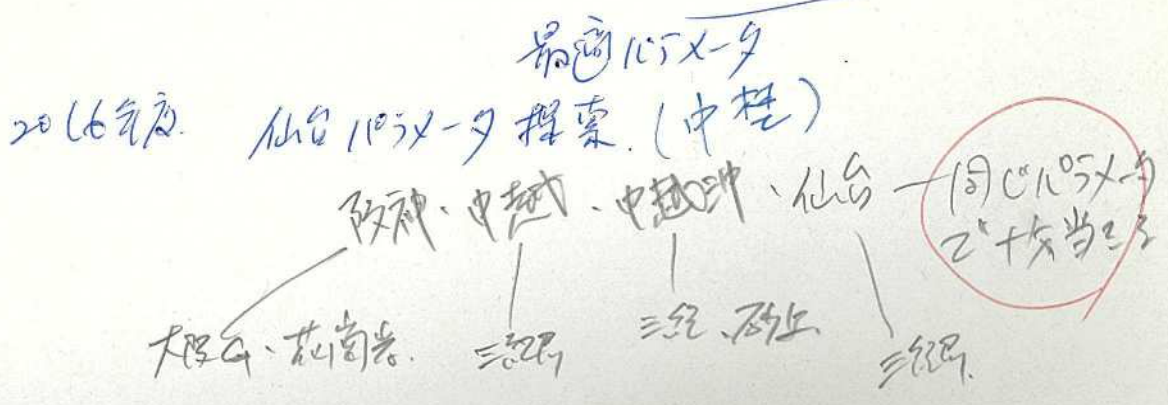 最適パラメータ
2016年度 仙台パラメータ探索.(中埜)
阪神・中越・中越沖・仙台 ー 同じパラメータ
で十分当たる
大阪層・花崗岩. 三紀層 三紀、砂丘 三紀層.